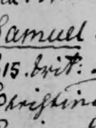 Samuel
15. Brit:
Christin